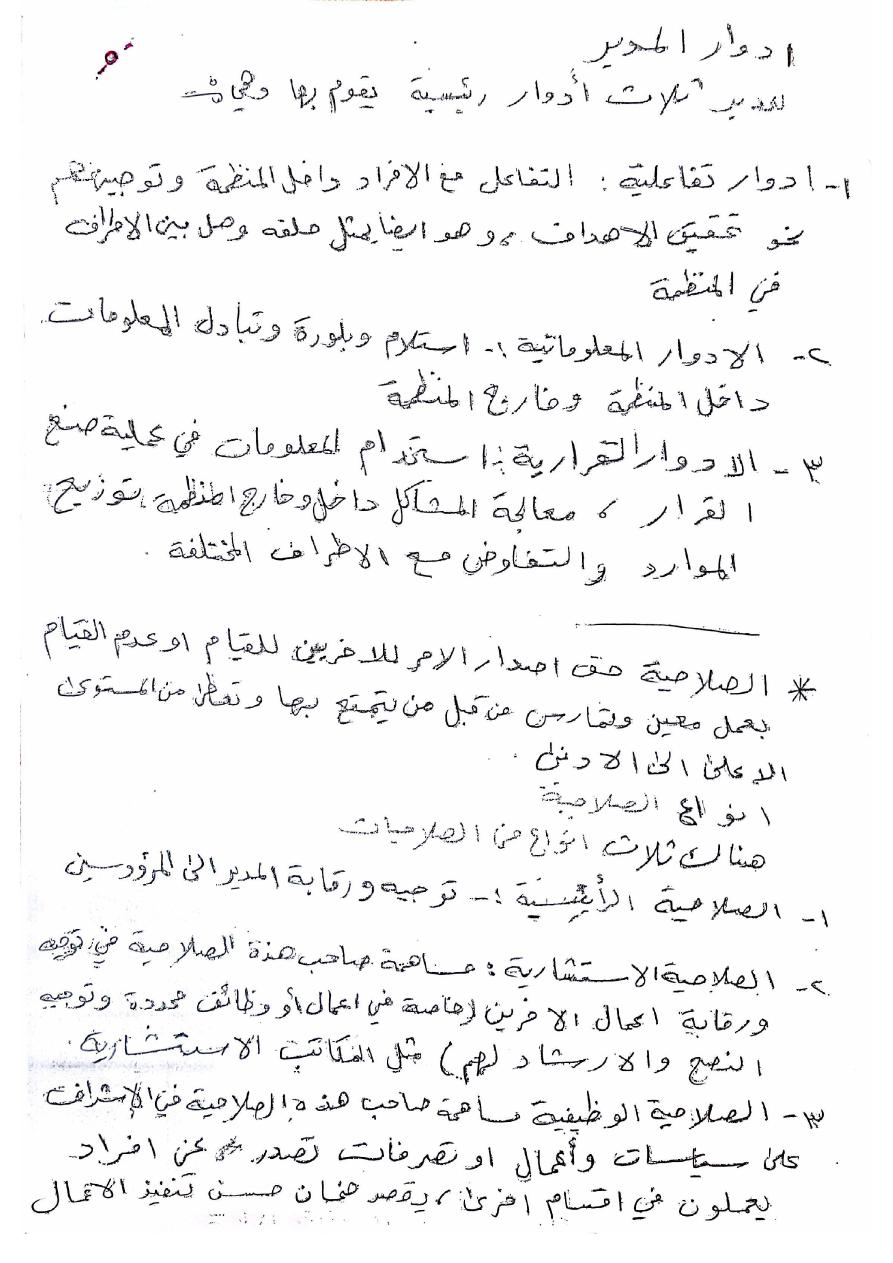 -٥-
ادوار المدير
للمدير ثلاث أدوار رئيسية يقوم بها وهي :-
١- ادوار تفاعلية : التفاعل مع الافراد داخل المنظمة وتوجيههم
نحو تحقيق الاهداف ، وهو ايضا يمثل حلقه وصل بين الاطراف
في المنظمة
٢- الادوار المعلوماتية :- استلام وبلورة وتبادل المعلومات
داخل المنظمة وخارج المنظمة
٣- الادوار القرارية : استخدام المعلومات في عملية صنع
القرار ، معالجة المشاكل داخل وخارج المنظمة ، توزيع
الموارد والتفاوض مع الاطراف المختلفة .
* الصلاحية حق اصدار الامر للاخرين للقيام او عدم القيام
بعمل معين وتمارس من قبل من يتمتع بها وتعطى من المستوى
الاعلى الى الادنى .
انواع الصلاحية
هناك ثلاث انواع من الصلاحيات
١- الصلاحية الرأيسية :- توجيه ورقابة المدير الى المرؤوسين
٢- الصلاحية الاستشارية : مساهمة صاحب هذة الصلاحية في توجيه
ورقابة اعمال الاخرين (خاصة في اعمال أو وظائف محددة وتوجيه
النصح والارشاد لهم) مثل المكاتب الاستشارية .
٣- الصلاحية الوظيفية مساهمة صاحب هذه الصلاحية في الإشراف
على سياسات وأعمال او تصرفات تصدر عن افراد
يعملون في اقسام اخرى ، يقصد ضمان حسن تنفيذ الاعمال